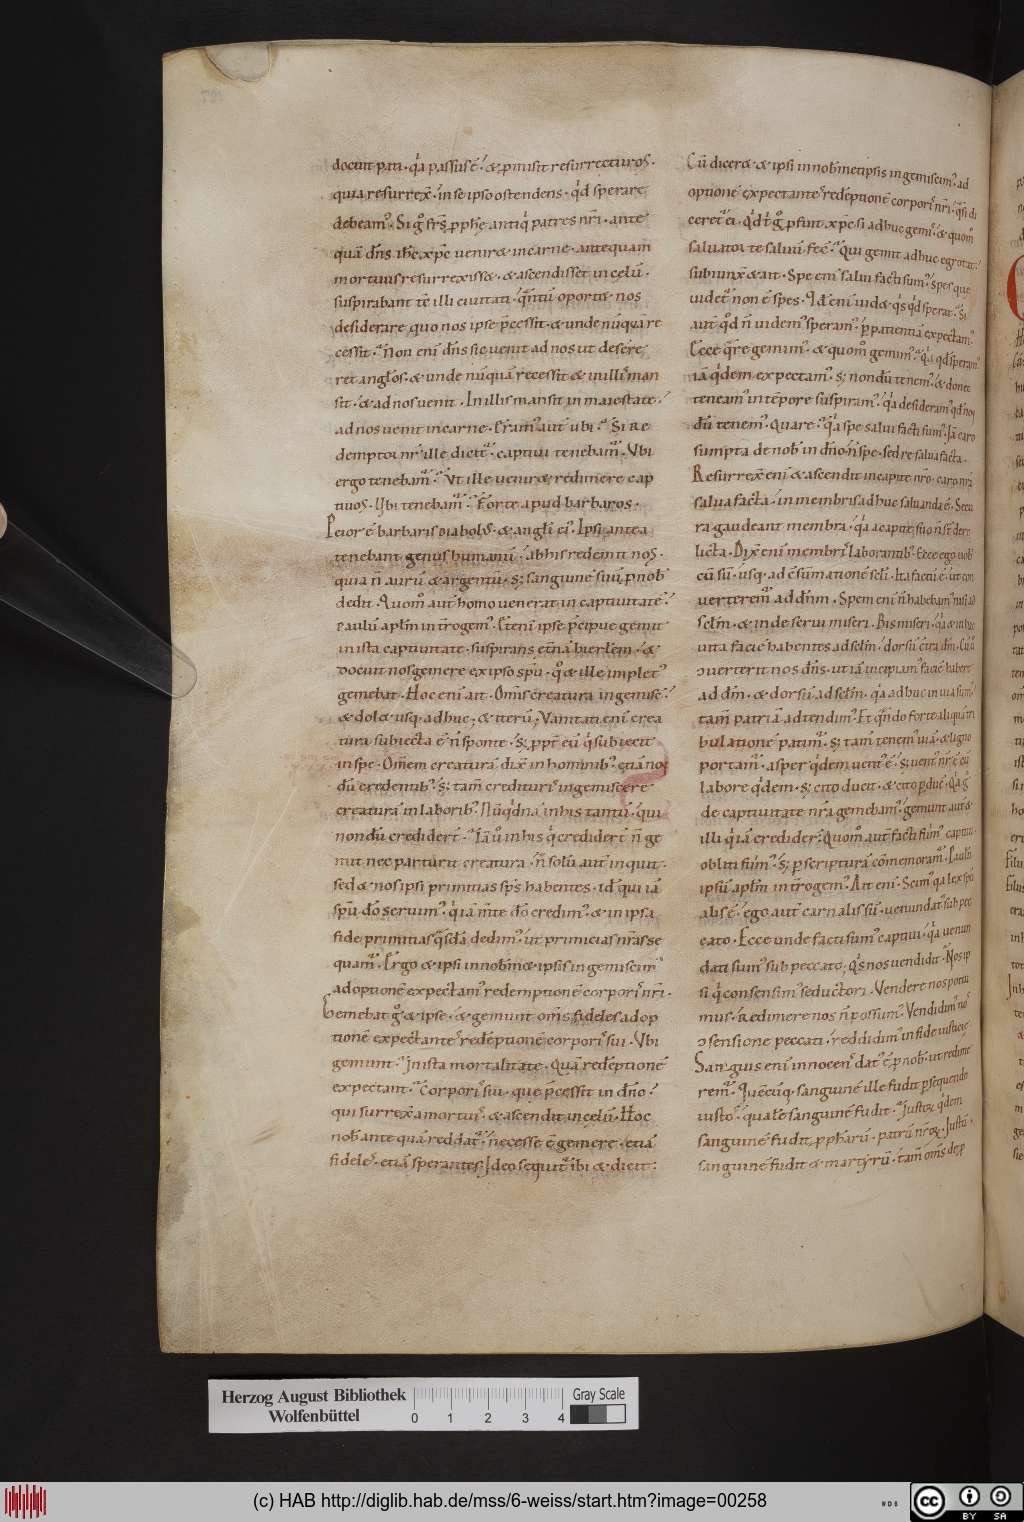 docuit pati · q̄a passus ē · & p̄misit resurrecturos ·
quia resurrex̄ · in se ipso ostendens · qd̄ sperare
debeam᷒ · Si g̊ fr̄s ꝓph̄e antiq̇ patres nr̄i · ante
quā dn̄s ih̄c xp̄c venir& in carne · antequam
mortuus resurrexiss& · & ascendisset in celū ·
suspirabant tn̄ illi civitati · q̄ntū oport& nos
desiderare quo nos ipse p̄cessit · & unde nūquā re
cessit · Non eni dn̄s sic venit ad nos ut desere
ret angl̄os · & unde nūquā recessit & illis man
sit · & ad nos venit · In illis mansit in maiestate ·
ad nos venit in carne · Eram᷒ aut̄ ubi · Si re
demptor nr̄ ille dicit᷒ · captivi tenebam᷒ · Ubi
ergo tenebam᷒ · Ut ille venir& redimere cap
tivos · Ubi tenebam᷒ · Forte apud barbaros ·
Peior ē barbaris diabol᷒ · & angli ei᷒ · Ipsi antea
tenebant genus humanū · ab his redemit nos ·
quia n̄ aurū & argentū · s; sanguinē suū ꝓ nob̄
dedit · Quom̊ aut̄ homo venerat in captivitatē ·
Paulū apl̄m int̄rogem᷒ · Etenī ipse p̄cipue gemit
in ista captivitate · suspirans et̄nā hierl̄em · &
docuit nos gemere ex ipso sp̄u · q̊ & ille implet᷒
gemebat · Hoc eni ait · Om̄is creatura ingemisc̄ ·
& dol& usq; adhuc · & iterū · Vanitati eni crea
tura subiecta ē n̄ sponte · s; ꝓpt̄ eū qi subiecit
in spe · Om̄em creaturā dix̄ in hominib; etiā no
dū credentib; s; tam̄ crediturᶦ ingemiscere
creaturā in laborib; Nūq̇dnā in his tantū · qui
nondū crediderī · Iā v̊ in his q̇ crediderī n̄ ge
mit nec parturit creatura · n̄ solū aut̄ inquit ·
sed & nos ipsi primitias sp̄s habentes · id̄ qui iā
sp̄u dō servim᷒ · q̇ iā m̄te dō credim᷒ · & in ipsa
fide primitias q̄sdā dedim᷒ · ut primicias nr̄as se
quam᷒ · Ergo & ipsi in nobim& ipsis ingemiscim᷒
adoptionē expectam᷒ redemptionē corporiᶦ nr̄i ·
Gemebat g̊ & ipse · & gemunt om̄s fideles adop
tionē expectantes redēptionē corporiᶦ sui · Ubi
gemunt · In ista mortalitate · Quā redēptionē
expectant · Corporiᶦ sui · que p̄cessit in dn̄o ·
qui surrex̄ a mortuiᶦ · & ascendit in celū · Hoc
nob̄ ante quā reddat᷒ · necesse ē gemere · etiā
fideleᶦ · etiā sperantes · Ideo sequit᷒ ibi & dicit ·
Cū dicer& · & ipsi in nobimetipsis ingemiscim᷒ · ad
optionē expectantes redēptionē corporiᶦ nr̄i · q̄si di
ceret᷒ ei · Qd̄ t g̊ ꝓfuit xp̄c si adhuc gemiᶦ · & quom̊
salvator te salvū fec̄ · Qui gemit adhuc egrotat ·
subiunx̄ & ait · Spe eni salvi facti sum᷒ · Spes que
videt᷒ non ē spes · Qd̄ eni vid& q̇s qd̄ sperat · Si
aut̄ qd̄ n̄ videm᷒ speram᷒ · ꝑ patientiā expectam᷒ ·
Ecce q̄re gemim᷒ · & quom̊ gemim᷒ · q̇a qd̄ speram᷒
iā q̇dem expectam᷒ · s; nondū tenem᷒ · & donec
teneam᷒ in tēpore suspiram᷒ · q̇a desideram᷒ qd̄ no
dū tenem᷒ · Quare · q̇a spe salvi facti sum᷒ · Iā caro
sumpta de nob̄ in dn̄o · n̄ spe · sed re salva facta ·
Resurrex̄ eni & ascendit in capite nr̄o · caro nr̄a
salva facta · in membris adhuc salvanda ē · Secu
ra gaudeant membra · q̇a a capite suo n̄ st̄ dere
licta · Dix̄ eni membriᶦ laborantib; Ecce ego vob̄
cū sū · usq; ad c̄sūmationē sc̄li · Ita factū ē · ut con
verterem᷒ ad dn̄m · Spem eni n̄ habebam᷒ nisi ad
sc̄lm · & inde servi miseri · Bis miseri · q̇a & in hac
vita faciē habentes ad sc̄lm · dorsū c̄tra dn̄m · Cū v̊
ɔverterit nos dn̄s · ut iā incipiam᷒ faciē habere
ad dn̄m · & dorsū ad sc̄lm · q̇a adhuc in via sum᷒
tam̄ patriā adtendim᷒ · Et qn̄do forte aliquā tri
bulationē patim᷒ · s; tam̄ tenem᷒ viā · & ligno
portam᷒ · asper q̇dem vent᷒ ē · s; vent᷒ nr̄ ē cū
labore q̇dem · s; cito ducit · & cito ꝑduc̄ · Q̇a g̊
de captivitate nr̄a gemebam᷒ · gemunt aut̄ &
illi q̇ iā credider̄ · Quom̊ aut̄ facti sum᷒ captivi
obliti sum᷒ · s; ꝑ scripturā cōmemoram᷒ · Paulū
ipsū apl̄m int̄rogem᷒ · Ait eni · Scim᷒ q̇a lex spū
alis ē · ego aut̄ carnalis sū · venundat᷒ sub pec
cato · Ecce unde facti sum᷒ captivi · q̇a venun
dati sum᷒ sub peccato · Q̇s nos vendidit · Nos ip
si q̇ consensim᷒ seductori · Vendere nos potui
mus · Redimere nos n̄ possum᷒ · Vendidim᷒ nos
ɔsensione peccati · reddidim᷒ in fide iusticie
Sanguis eni innocenᶦ dat᷒ ē ꝓ nob̄ · ut redime
rem᷒ · Quēcūq; sanguinē ille fudit ꝑsequendo
iustos · qualē sanguinē fudit · Iustoꝝ q̇dem
sanguinē fudit · ꝓphārū · patrū nr̄oꝝ · Iustū ·
sanguinē fudit & martyrū · tam̄ om̄s de ꝓ
Herzog August Bibliothek
Wolfenbüttel
0 1 2 3 4
Gray Scale
(c) HAB http://diglib.hab.de/mss/6-weiss/start.htm?image=00258
WDB
cc
BY SA